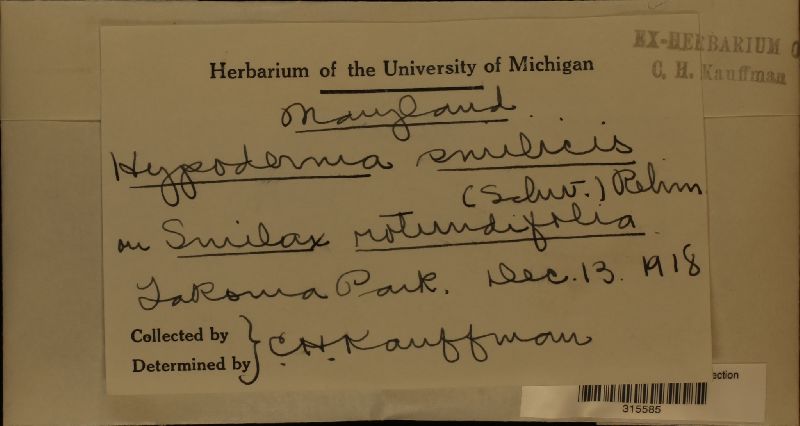 EX-HERBARIUM O
C. H. Kauffman
Herbarium of the University of Michigan
Maryland
Hypoderma smilicis
(Schw.) Rehm
on Smilax rotundifolia
Takoma Park. Dec. 13. 1918
Collected by
Determined by } C. H. Kauffman
ection
315585